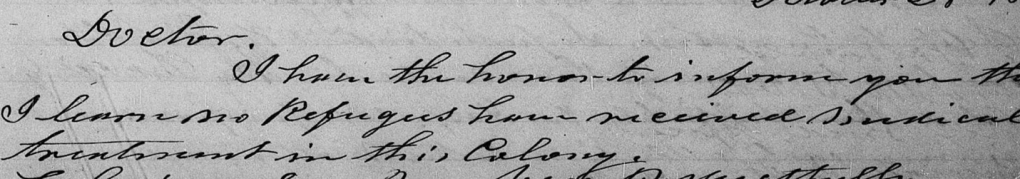 Doctor.
I have the honor to inform you
I learn no Refugees have received Medical
treatment in this Colony.